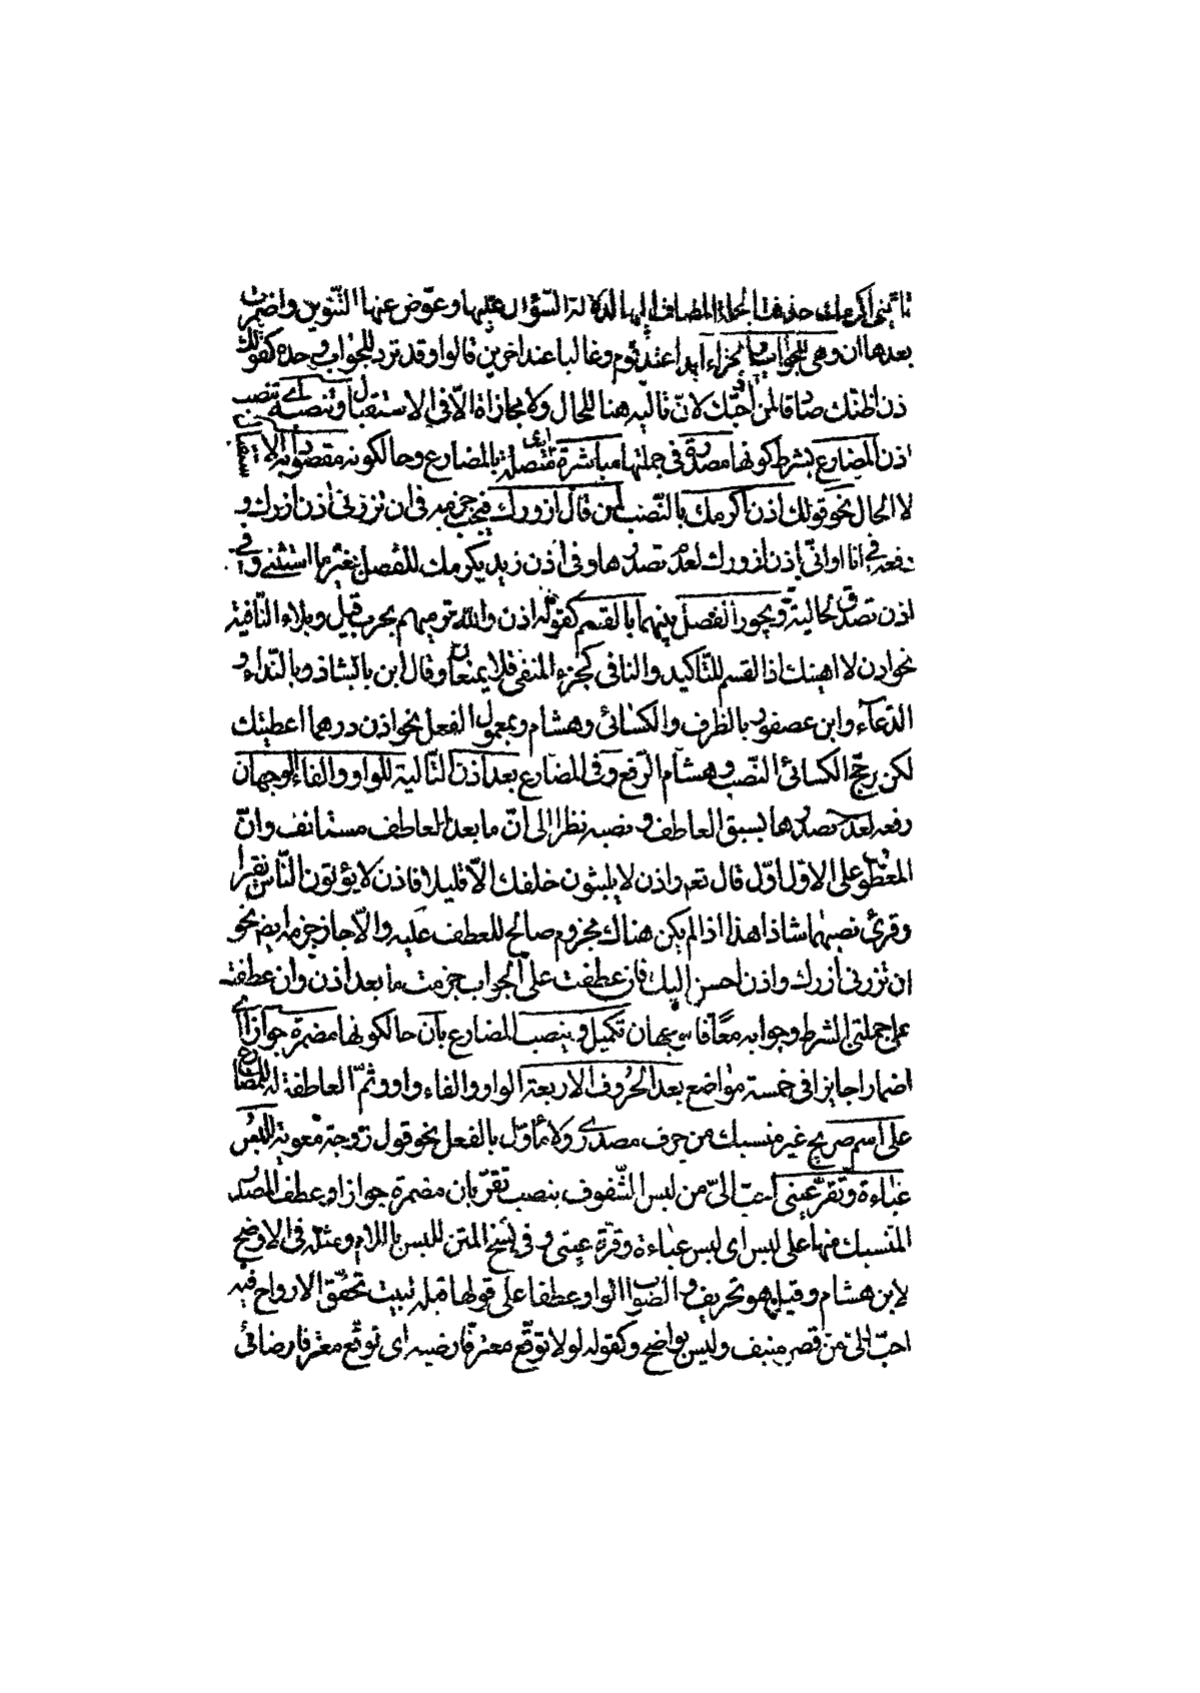 تأتيني اكرمك حذفت الجملة المضاف اليها لدلالة السؤال عليها وعوّض عنها التنوين واضمرت
بعدها ان وهي للجواب والجزاء ابدا عند قوم وغالبا عند اخرين قالوا وقد ترد للجواب وحده كقولك
ذن اظنك صادقا لمن قال احبّك لانّ تاليه هنا للحال ولا مجازاة الّا في الاستقبال وتنصبه اي تنصب
اذن المضارع بشرط كونها مصدرة في جملتها مباشرة اي متصلة بالمضارع وحالكونه مقصودا به الاستقبال
لا الحال نحو قولك اذن اكرمك بالنّصب لمن قال ازورك فيجب جزمه في ان تزرني اذن ازرك و
رفعه في انا او انّي اذن ازورك لعدم تصدرها وفي اذن زيد يكرمك للفصل بغير ما استثني وفي
اذن تصدق لحاليته ويجوز الفصل بينهما بالقسم كقوله اذن والله نرميهم بحرب قيل وبلاء النّافية
نحو اذن لا اهينك اذا القسم للتّاكيد والنافي كجزء المنفي فلا يمنعان وقال ابن بابشاذ وبالنّداء و
الدّعآء وابن عصفور بالظرف والكسائي وهشام وبمعمول الفعل نحو اذن درهما اعطيتك
لكن رجّح الكسائي النّصب وهشام الرّفع وفي المضارع بعد اذن التّالية للواو والفاء الوجهان
رفعه لعدم تصدرها بسبق العاطف ونصبه نظرا الى انّ ما بعد العاطف مستانف وانّ
المعطوف على الاول اوّل قال تعم واذن لا يلبثون خلفك الّا قليلا فاذن لا يؤتون النّاس نقيرا
وقرئ نصبهما شاذا هذا اذا لم يكن هناك مجزوم صالح للعطف عليه والّا جاز جزمه ايضا نحو
ان تزرني ازرك واذن احسن اليك فان عطفت على الجواب جزمت ما بعد اذن وان عطفته
على جملتي الشرط وجوابه معًا فالوجهان تكميل وينصب المضارع بان حالكونها مضمرة جوازا اي
اضمارا جايزا في خمسة مواضع بعد الحروف الاربعة الواو والفاء واو وثمّ العاطفة له للمضارع
على اسم صريح غير منسبك من حرف مصدري ولا مأوّل بالفعل نحو قول زوجة معوية للبس
عباءة وتقرّ عيني احبّ اليّ من لبس الشّفوف بنصب تقرّ بان مضمرة جوازا وعطف المصدر
المنسبك منها على لبس اي لبس عباءة وقرّة عيني وفي نسخ المتن للبس باللام ومثله في الاوضح
لابن هشام وقيل هو تحريف والصّواب الواو عطفا على قولها قبله لبيت تخفق الارواح فيه
احبّ اليّ من قصر منيف وليس بواضح وكقوله لولا توقّع معترّ فارضيه اي توقّع معترّ فارضائي